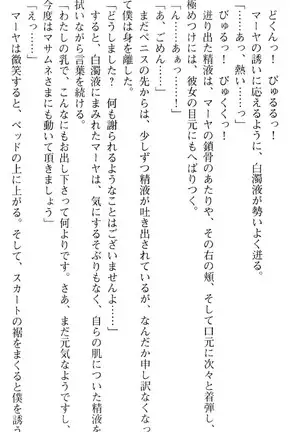 どくんっ！　びゅるるっ！
マーヤの誘いに応えるように、白濁液が勢いよく迸る。
「あっ……、熱い……っ」
びゅるっ！　びゅくくっ！
迸り出た精液は、マーヤの鎖骨のあたりや、その右の頬、そして口元に次々と着弾し、
極めつけには、彼女の目元にもへばりつく。
「ん……あぁっ……！」
「あ、ごめん……」
まだペニスの先からは、少しずつ精液が吐き出されているが、なんだか申し訳なくなっ
て僕は身を離した。
「どうしました？　何も謝られるようなことはございませんよ……」
白濁液にまみれたマーヤは、気にするそぶりもなく、自らの肌についた精液を
拭いながら言葉を続ける。
「わたしの乳で、こんなにもお出し下さって何よりです。さあ、まだ元気なようですし、
今度はマサムネさまにも動いて頂きましょう」
「えっ……」
マーヤは微笑すると、ベッドの上に上がる。そして、スカートの裾をまくると僕を誘う